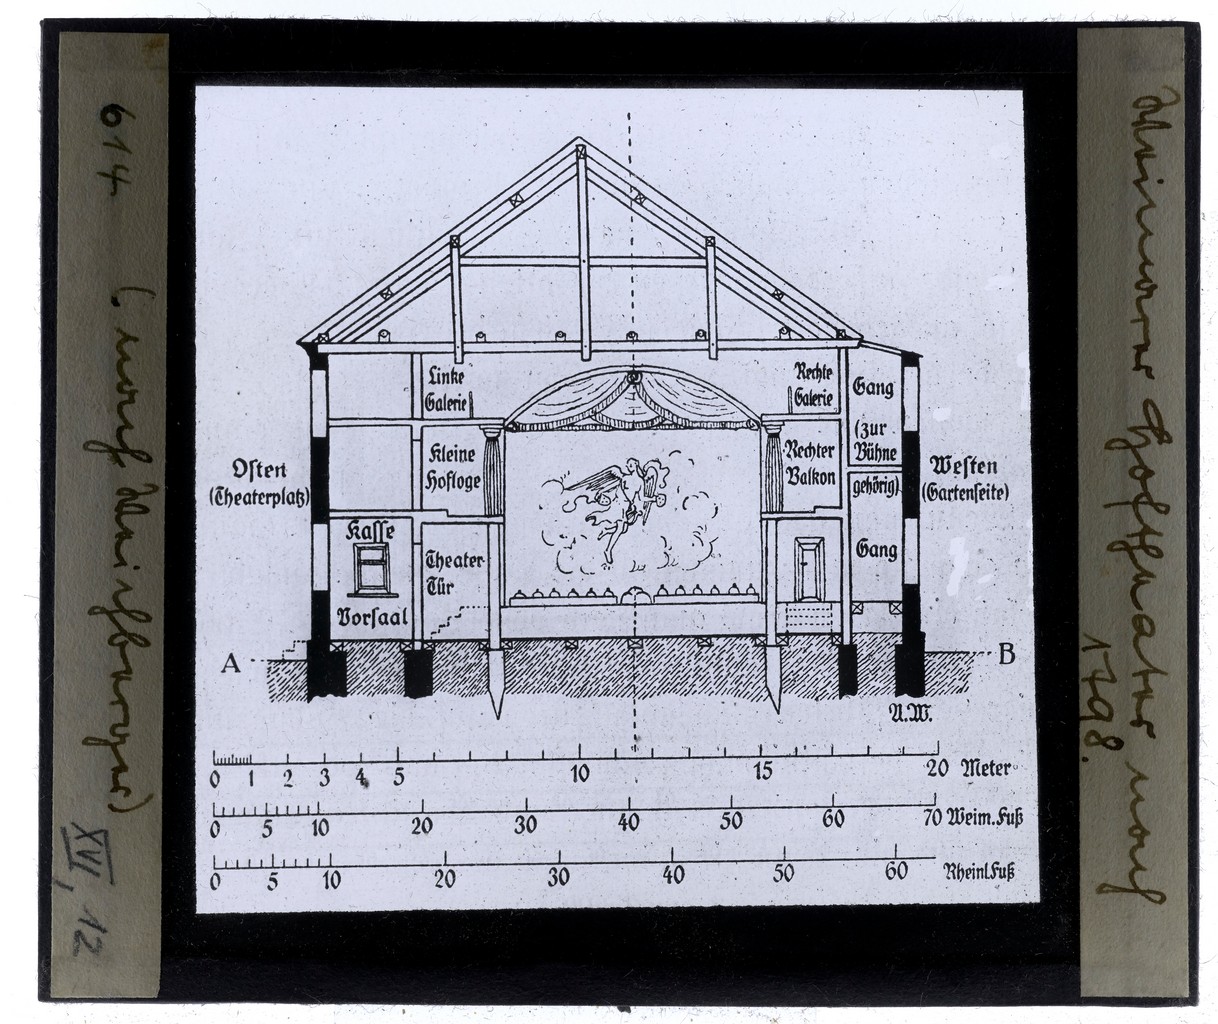 614
(: nach Weichberger)
XVI, 12
Linke
Galerie
Rechte
Galerie
Gang
(Zur
Bühne
gehörig)
Kleine
Hofloge
Rechter
Balkon
Osten
(Theaterplatz)
Westen
(Gartenseite)
Kasse
Vorsaal
Theater-
Tür
Gang
A
B
A.W.
0 1 2 3 4 5 10 15 20 Meter
0 5 10 20 30 40 50 60 70 Weim.Fuß
0 5 10 20 30 40 50 60 Rheinl.Fuß
Weimarer Hoftheater nach
1798.